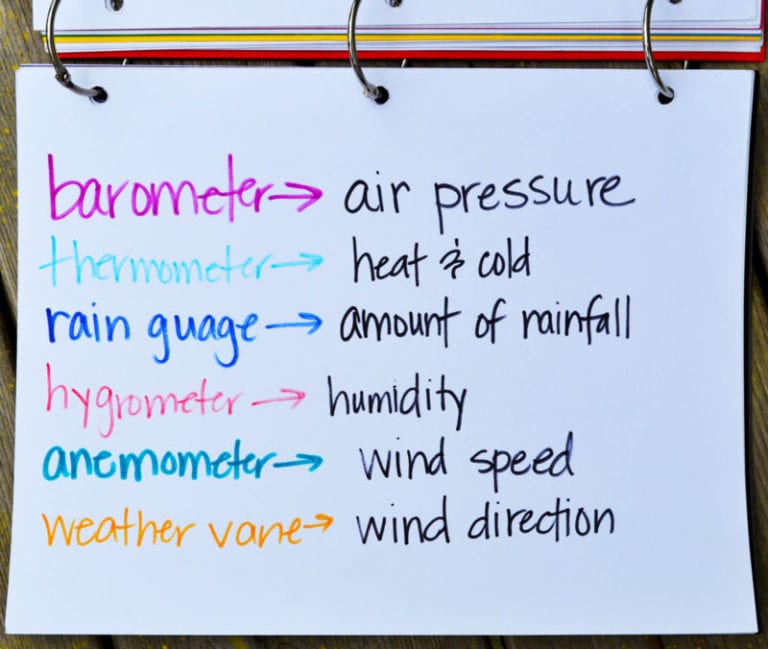 barometer→ air pressure
thermometer→ heat & cold
rain guage→ amount of rainfall
hygrometer→ humidity
anemometer→ wind speed
weather vane→ wind direction